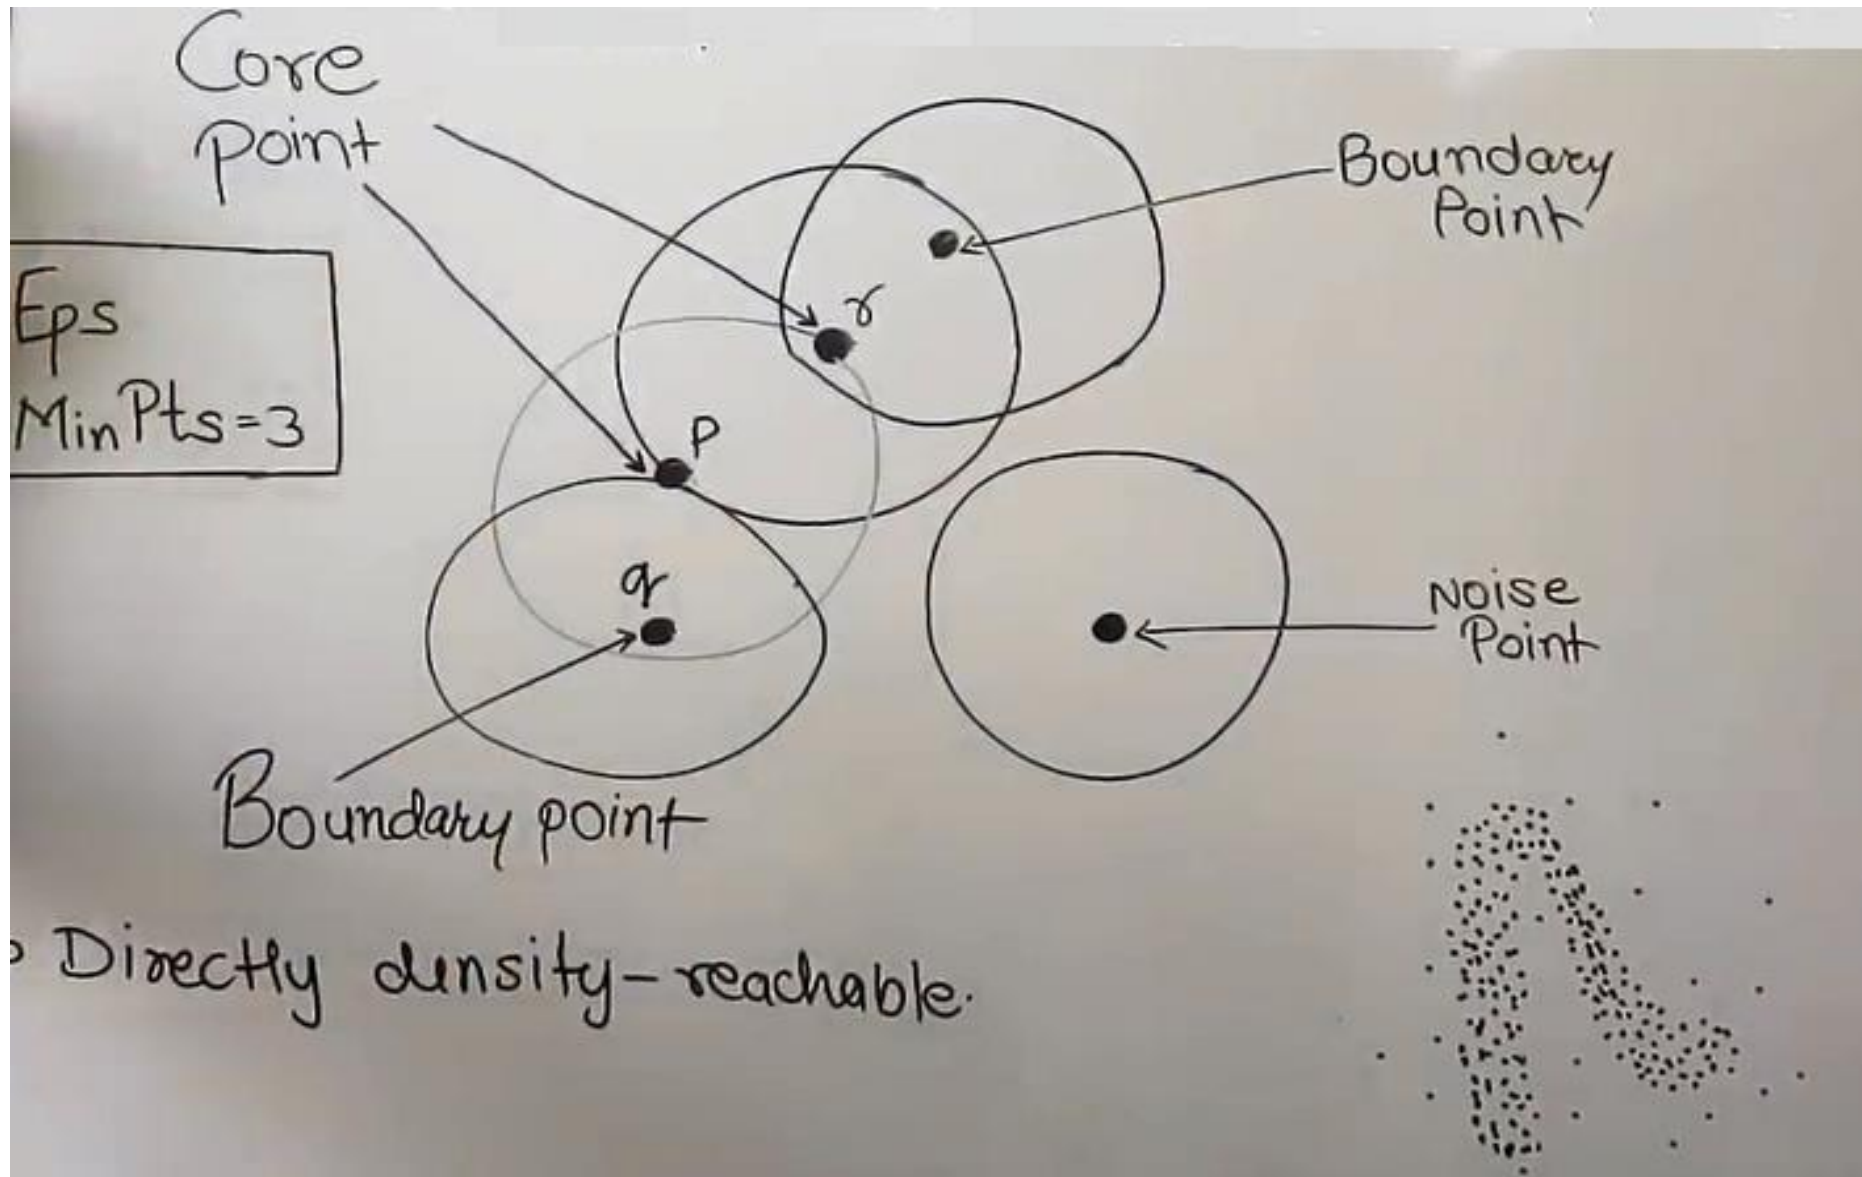 Core
point
Boundary
Point
Eps
MinPts=3
r
p
q
Noise
Point
Boundary point
Directly density-reachable.